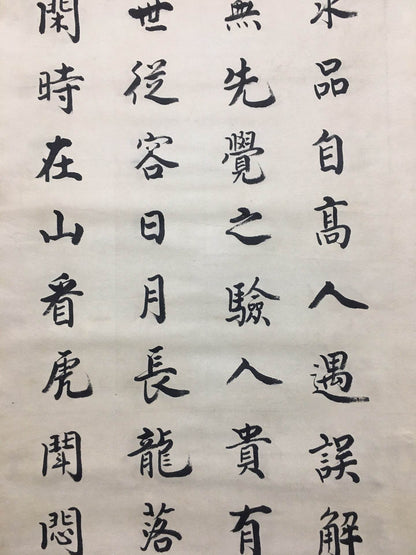 求品自高人遇誤解
無先覺之驗人貴有
世從容日月長龍落
閑時在山看虎聞悶